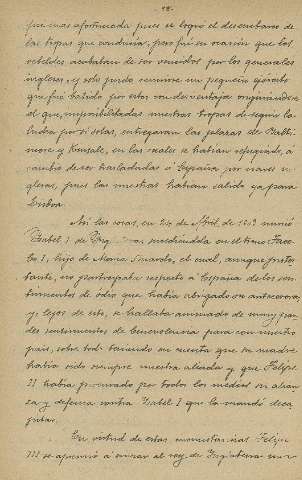 -18-
que más afortunada pues se logró el desembarco de
las tropas que conducía, pero fué en ocasión que los
rebeldes acababan de ser vencidos por los generales
ingleses, y solo pudo reunirse un pequeño ejército
que fué batido por estos con desventaja originándose
el que, imposibilitadas nuestras tropas de seguir la
lucha por sí solas, entregaran las plazas de Balti-
more y Kinsale, en las cuales se habían refugiado, a
cambio de ser trasladadas a España por naves in-
glesas, pues las nuestras habían salido ya para
Lisboa.
Así las cosas, en 24 de Abril de 1603 murió
Isabel I de sucediéndola en el trono Jaco-
bo I, hijo de María Stuardo, el cual, aunque protes-
tante, no participaba respecto a España de los sen-
timientos de odio que había abrigado su antecesora,
y lejos de esto, se hallaba animado de muy gran-
des sentimientos de benevolencia para con nuestro
país, sobre todo teniendo en cuenta que su madre
había sido siempre nuestra aliada y que Felipe
II había procurado por todos los medios su alian-
za y defensa contra Isabel I que la mandó deca-
pitar.
En virtud de estas circunstancias Felipe
III se apresuró a enviar al rey de Inglaterra un